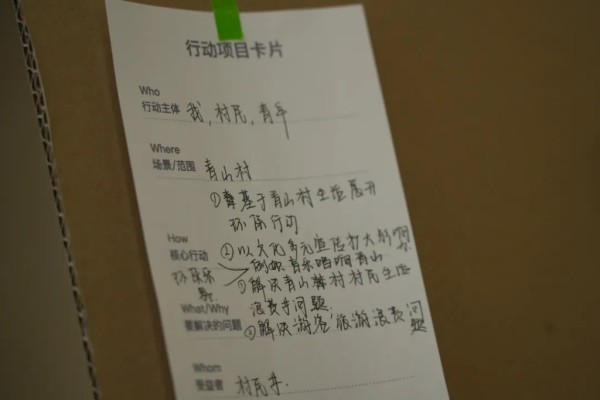 行动项目卡片
Who
行动主体 我,村民,青年
Where
场景/范围 青山村
①基于青山村生活展开
环保行动
How
核心行动 ②以文化多元宣传扩大影响
例如音乐唱响青山
环保
①解决青山村村民生活
What/Why
浪费等问题
要解决的问题 ②解决游客旅游浪费问题
Whom
受益者 村民